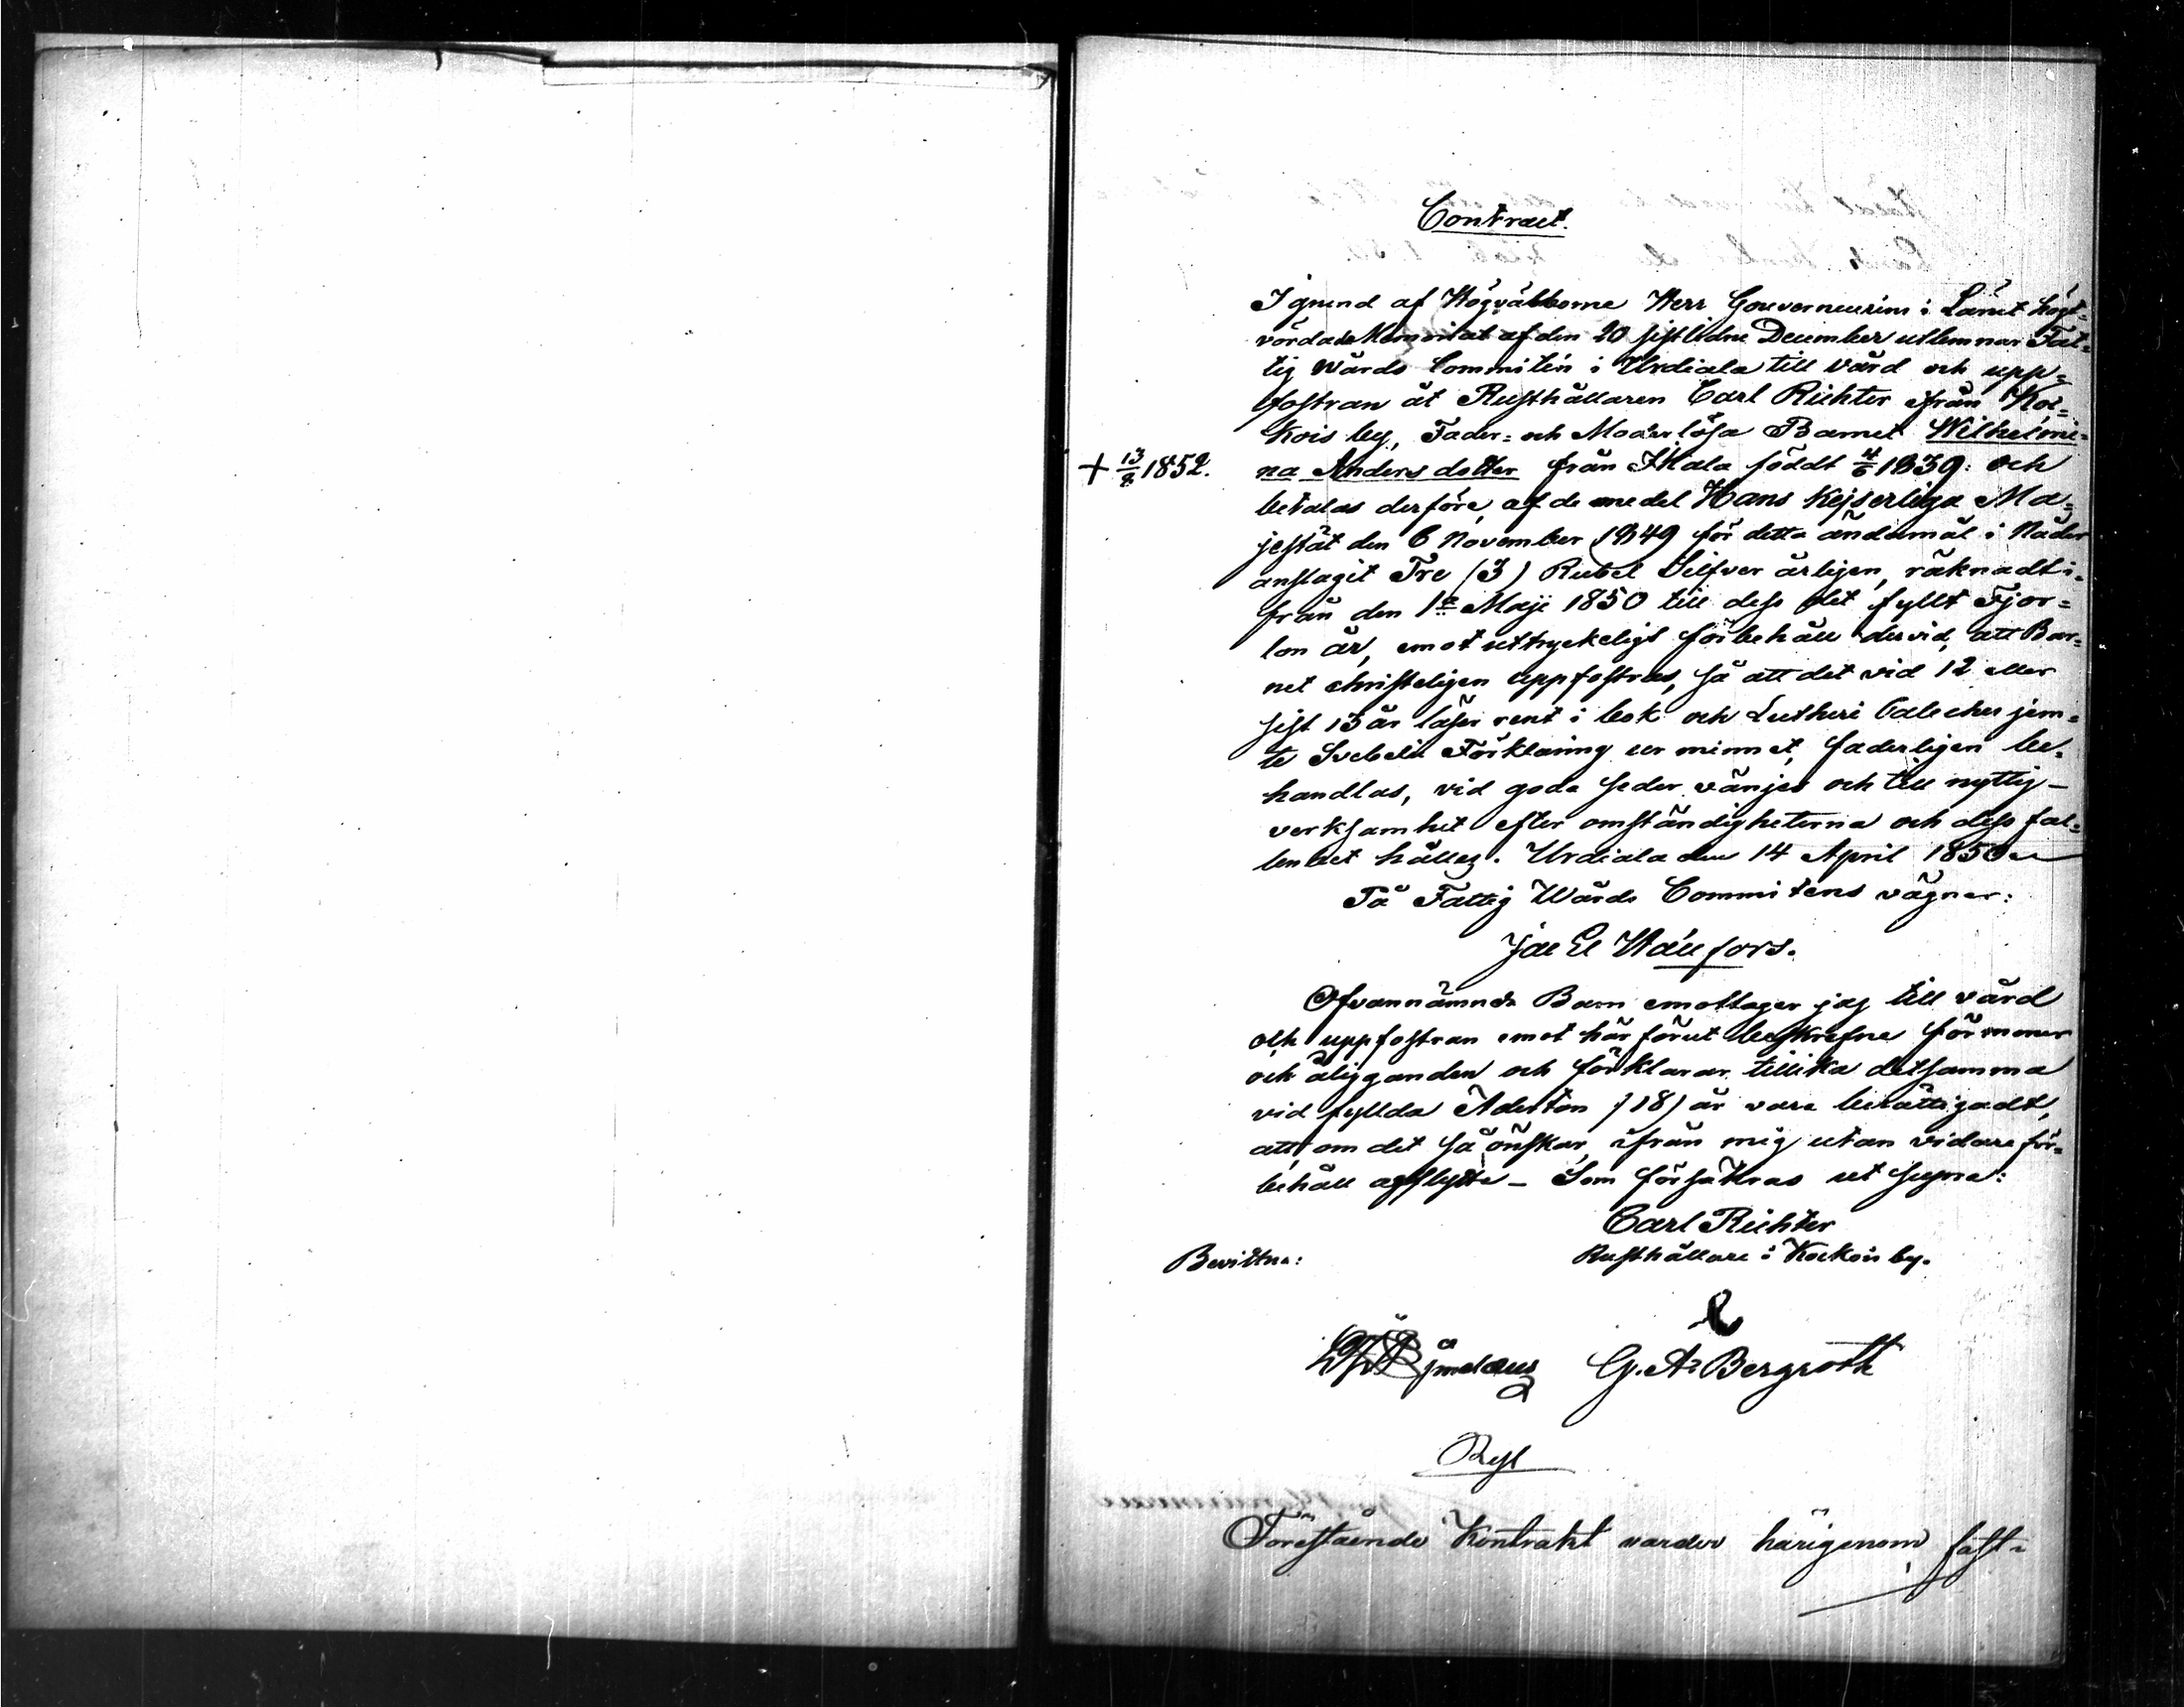 Contract.
I grund af Högvälborne Herr Gouverneurens i Länet högt-
vördade Memorial af den 20 sistlidne December utlemnar Fat-
tig Wårds Committén i Urdiala till vård och upp-
fostran åt Rusthållaren Carl Richter ifrån Koi-
kois by, Fader- och Moderlösa Barnet Wilhelmi-
+ 13/8 1852.
na Andersdotter från födt 4/6 1839: och
betalas derföre, af de medel Hans Kejserliga Ma-
jestät den 6 November 1849 för detta ändamål i Nåder
anslagit Tre (3) Rubel Silfver årligen, räknadt i-
från den 1a Maji 1850 till dess det fyllt Fjor-
ton år, emot uttryckeligt förbehåll dervid, att Bar-
net christeligen uppfostras, så att det vid 12 eller
sist 13 år läser rent i bok och Lutheri Cateches jem-
te Svebelii Förklaring ur minnet, faderligen be-
handlas, vid goda seder vänjes och till nyttig
verksamhet efter omständigheterna och dess fal-
lenhet hålles. Urdiala den 14 April 1850
På Fattig Wårds Committens vägnar:
Ofvannämnde Barn emottager jag till vård
och uppfostran emot här förut beskrefne förmoner
och åligganden och förklarar tillika detsamma
vid fyllda Aderton (18) år vara berättigadt,
att, om det så önskar, ifrån mig utan vidare för-
behåll afflytta – Som försäkras ut supra:
Carl Richter
Rusthållare i Koikois by.
Bevittna:
G. A. Bergroth
Res
Förestående Kontrakt varder härigenom fast-